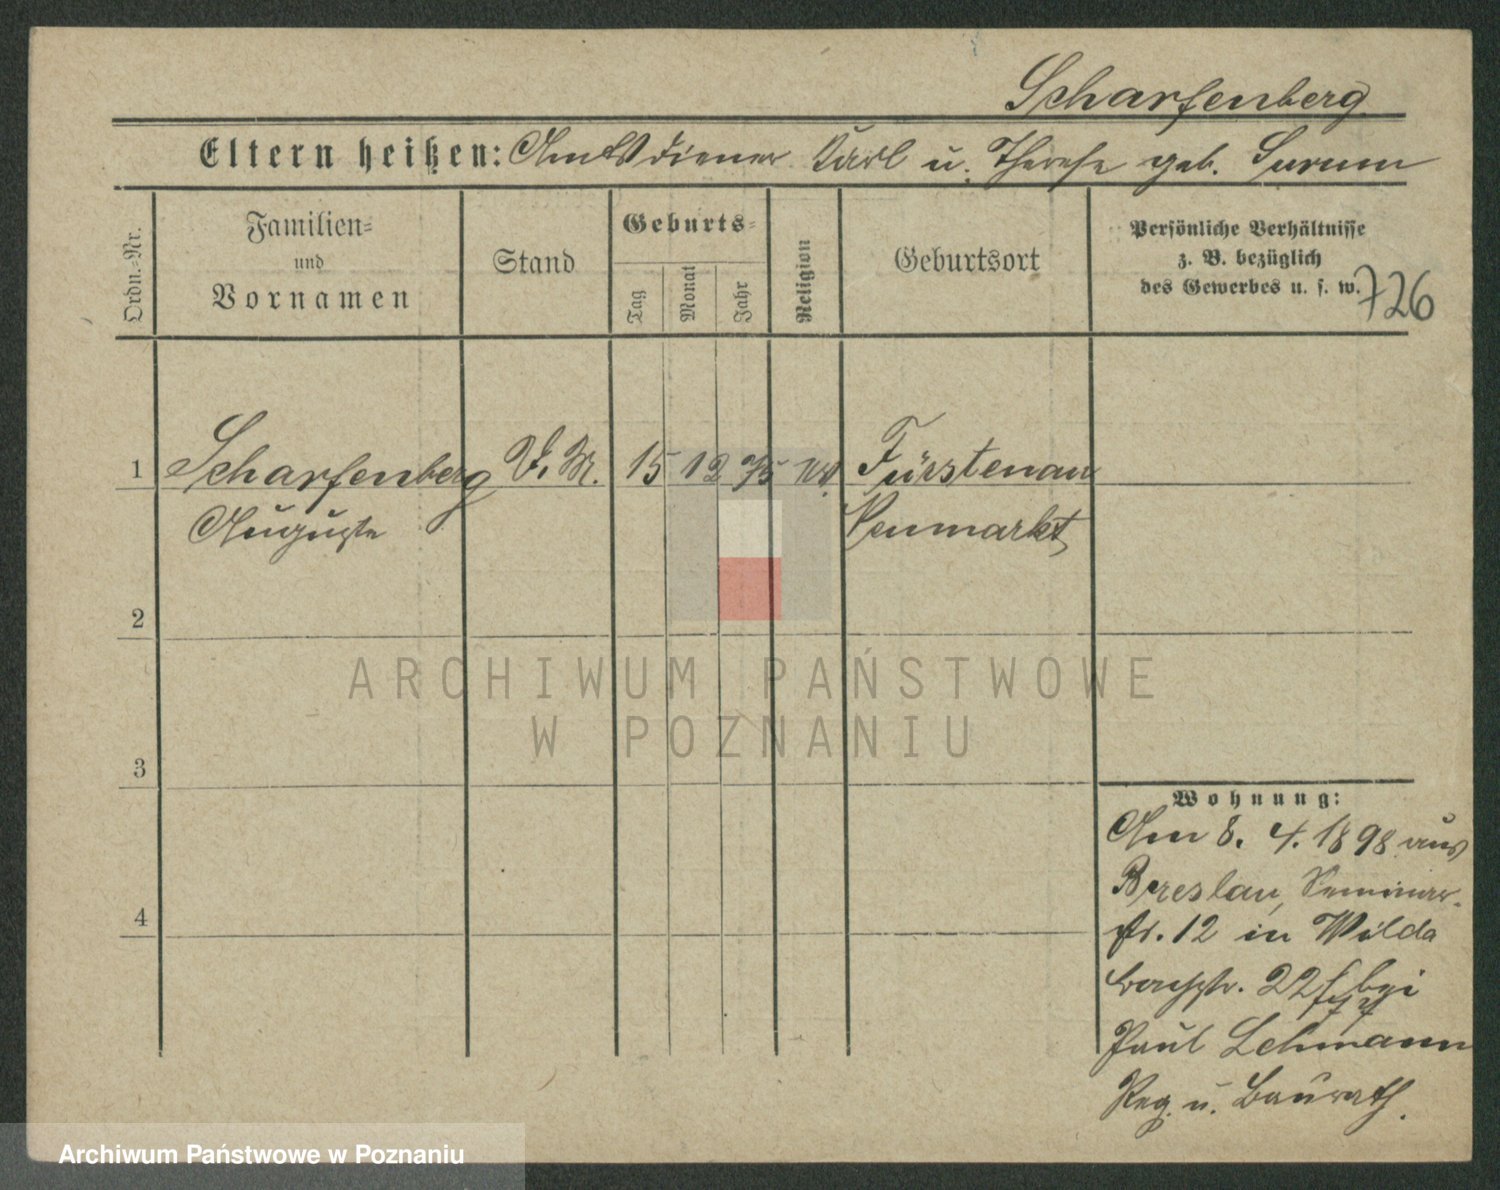 Scharfenberg
Eltern heißen: Amtsdiener Karl u. Therese geb.
Ordn.-Nr.
Familien-
und
Vornamen
Stand
Geburts-
Tag
Monat
Jahr
Religion
Geburtsort
Persönliche Verhältnisse
z. B. bezüglich
des Gewerbes u. s. w.
726
1 Scharfenberg 15 12 75 Fürstenau
Auguste Neumarkt
2
3
4
Wohnung:
Am 8. 4. 1898 aus
Breslau, Seminar-
str. 12 in Wilda
22 bei
Paul Lehmann
Reg. u. Baurath.
ARCHIWUM PAŃSTWOWE
W POZNANIU
Archiwum Państwowe w Poznaniu